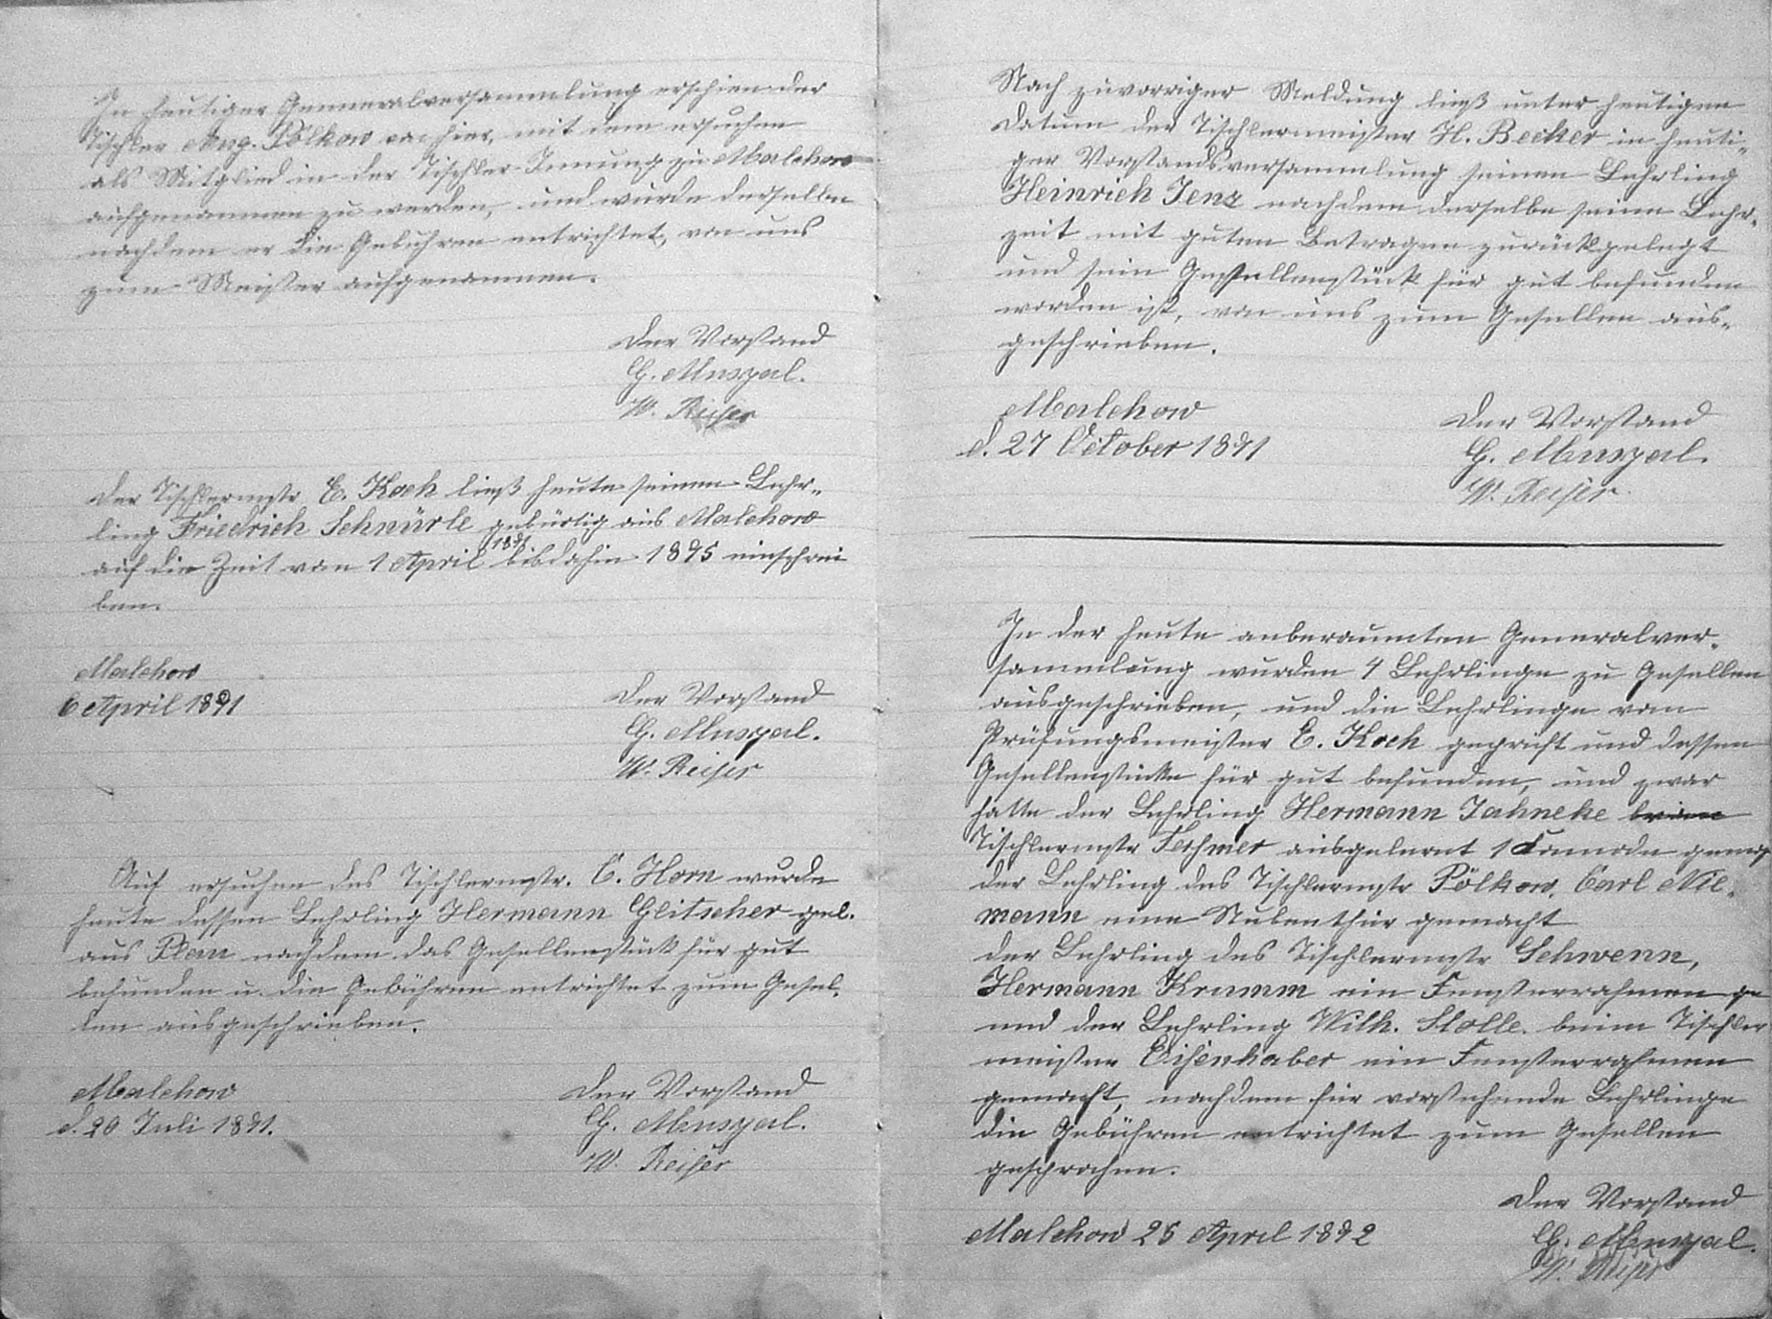 In heutiger Gemneralversammlung erschien der
Tischler Aug. Pölkow von hier, mit dem ersuchen
als Mitglied in der Tischler-Innung zu Malchow
aufgenommen zu werden, und wurde derselbe
nachdem er die Gebühren entrichtet, von uns
zum Meister aufgenommen.
Der Vorstand
G.
W. Reiser
Der Tischlermstr E. Koch ließ heute seinen Lehr-
ling Friedrich Schnürle gebürtig aus Malchow
auf die Zeit von 1 April 1891 bis dahin 1895 einschrei
ben.
Malchow
6 April 1891
Der Vorstand
G.
W. Reiser
Auf ersuchen des Tischlermstr. C. Horn wurde
heute dessen Lehrling Hermann Glitscher geb.
aus Plau nachdem das Gesellenstück für gut
befunden u. die Gebühren entrichtet zum Gesel-
len ausgeschrieben.
Malchow
d. 20 Juli 1891.
Der Vorstand
G.
W. Reiser
Nach zuvorriger Meldung ließ unter heutigen
Datum der Tischlermeister H. Becker in heuti-
ger Vorstandsversammlung seinen Lehrling
Heinrich Jenz nachdem derselbe seine Lehr-
zeit mit guten Betragen zurückgelegt
und sein Gesellenstück für gut befunden
worden ist, von uns zum Gesellen aus-
geschrieben.
Malchow
d. 27 October 1891
Der Vorstand
G.
W. Reiser
In der heute anberaumten Generalver-
sammlung wurden 4 Lehrlinge zu Gesellen
ausgeschrieben, und die Lehrlinge vom
Prüfungsmeister E. Koch geprüft und dessen
Gesellenstücke für gut befunden, und zwar
hatte der Lehrling Hermann Jahneke beim
Tischlermstr ausgelernt 1 Komode gemacht
der Lehrling des Tischlermstr Pölkow, Carl Nie-
mann eine Stubenthür gemacht
der Lehrling des Tischlermstr Schwenn,
Hermann Krumm ein Fensterrahmen ge
und der Lehrling Wilh. Stolle beim Tischler
meister Eisenhaber ein Fensterrahmen
gemacht, nachdem für vorstehende Lehrlinge
die Gebühren entrichtet zum Gesellen
gesprochen.
Der Vorstand
Malchow 25 April 1892
G.
W. Reiser